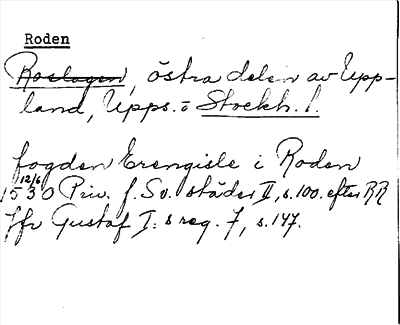 Roden
Roslagen, östra delen av Upp-
land, Upps. o Stockh. l.
fogden Erengisle i Roden
12/6
1530 Priv. f. Sv. städer II, s. 100. efter RR
Jfr Gustaf I:s reg. 7, s. 147.